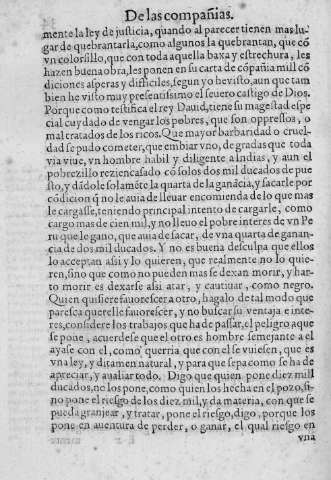 De las compañias.
mente la ley de justicia, quando al parecer tienen mas lu-
gar de quebrantarla, como algunos la quebrantan, que cõ
vn colorsillo, que con toda aquella baxa y estrechura, les
hazen buena obra, les ponen en su carta de cõpañia mill cõ
diciones asperas y difficiles, segun yo he visto, aun que tam
bien he visto muy presentissimo el seuero castigo de Dios.
Porque como testifica el rey Dauid, tiene su magestad esp̱e
cial cuydado de vengar los pobres, que son oppressos, o
mal tratados de los ricos. Que mayor barbaridad o cruel-
dad se pudo cometer, que embiar vno, de gradas que toda
via viue, vn hombre habil y diligente a Indias, y aun el
pobrezillo rezien casado cõ solos dos mil ducados de pue
sto, y dãdole solamẽte la quarta de la ganãcia, y sacarle por
cõdicion q̃ no le auia de lleuar encomienda de lo que mas
le cargasse, teniendo principal intento de cargarle, como
cargo mas de cien mil, y no lleuo el pobre interes de vn Pe
ru que le gano, que auia de sacar, de vna quarta de ganan-
cia de dos mil ducados. Y no es buena desculpa que ellos
lo acceptan assi y lo quieren, que realmente no lo quie-
ren, sino que como no pueden mas se dexan morir, y har-
to morir es dexarse assi atar, y cautiuar, como negro.
Quien quisiere fauorescer a otro, hagalo de tal modo que
paresca querelle fauorescer, y no buscar su ventaja e inte-
res, considere los trabajos que ha de passar, el peligro a que
se pone, acuerdese que el otro es hombre semejante a el
ayase con el, como querria que con el se vuiesen, que es
vna ley, y ditamen natural, y para que sepa como se ha de
apreciar, y aualiar todo. Digo que quien pone diez mill
ducados, no los pone, como quien los hecha en el pozo, si-
no pone el riesgo de los diez mil, y da materia, con que se
pueda granjear, y tratar, pone el riesgo, digo, porque los
pone en auentura de perder, o ganar, el qual riesgo en
vna